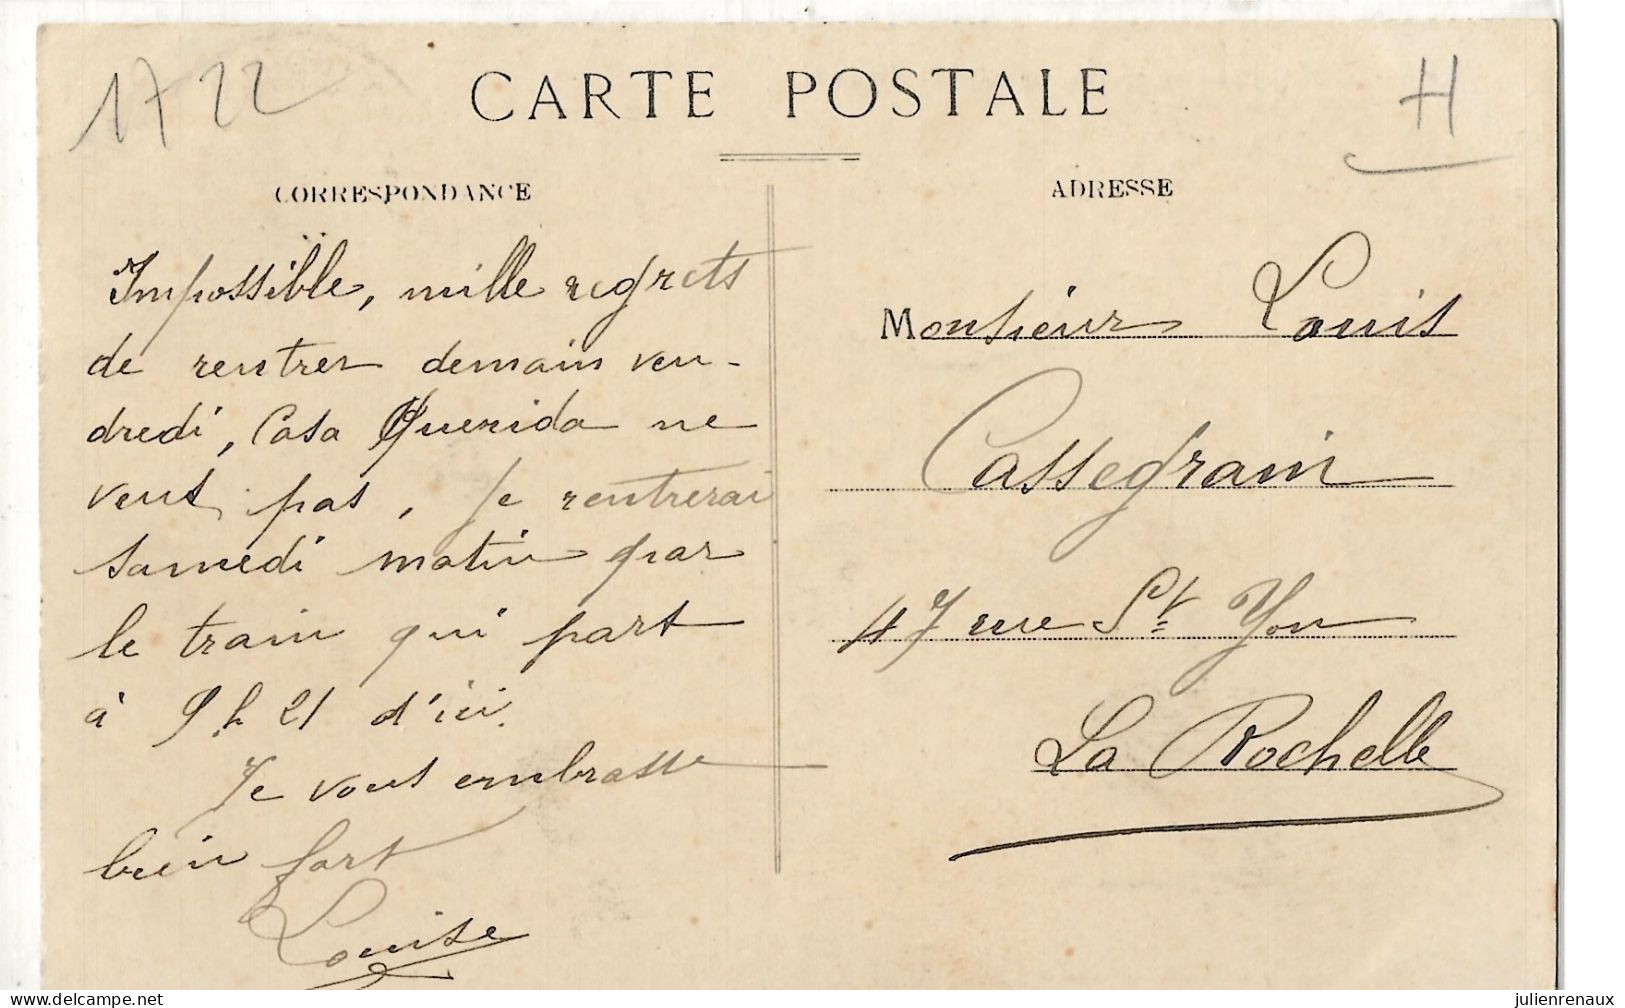 1722
CARTE POSTALE
H
CORRESPONDANCE
Impossible, mille regrets
de rentrer demain ven-
dredi, Casa Querida ne
veut pas, je rentrerai
samedi matin par
le train qui part
à 9 h 21 d'ici.
Je vous embrasse
bien fort
Louise
ADRESSE
Monsieur Louis
Cassegrain
47 rue St Yon
La Rochelle
www.delcampe.net
julienrenaux